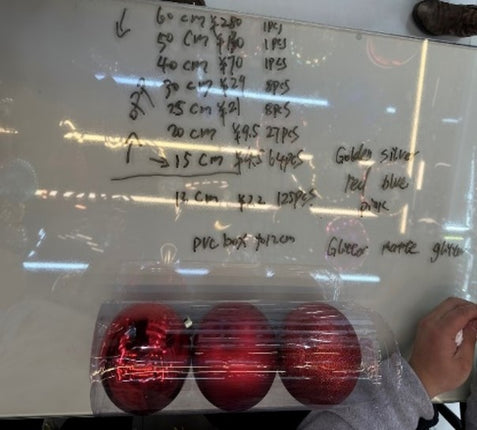 60 cm ¥280 1PCS
50 cm ¥130 1PCS
40 cm ¥70 1PCS
30 cm ¥29 8PCS
25 cm ¥21 8PCS
20 cm ¥9.5 27PCS
15 cm ¥4.5 64PCS Golden silver
red blue
12 cm ¥2.2 125PCS pink
PVC box for 12cm Glitter matte glitter